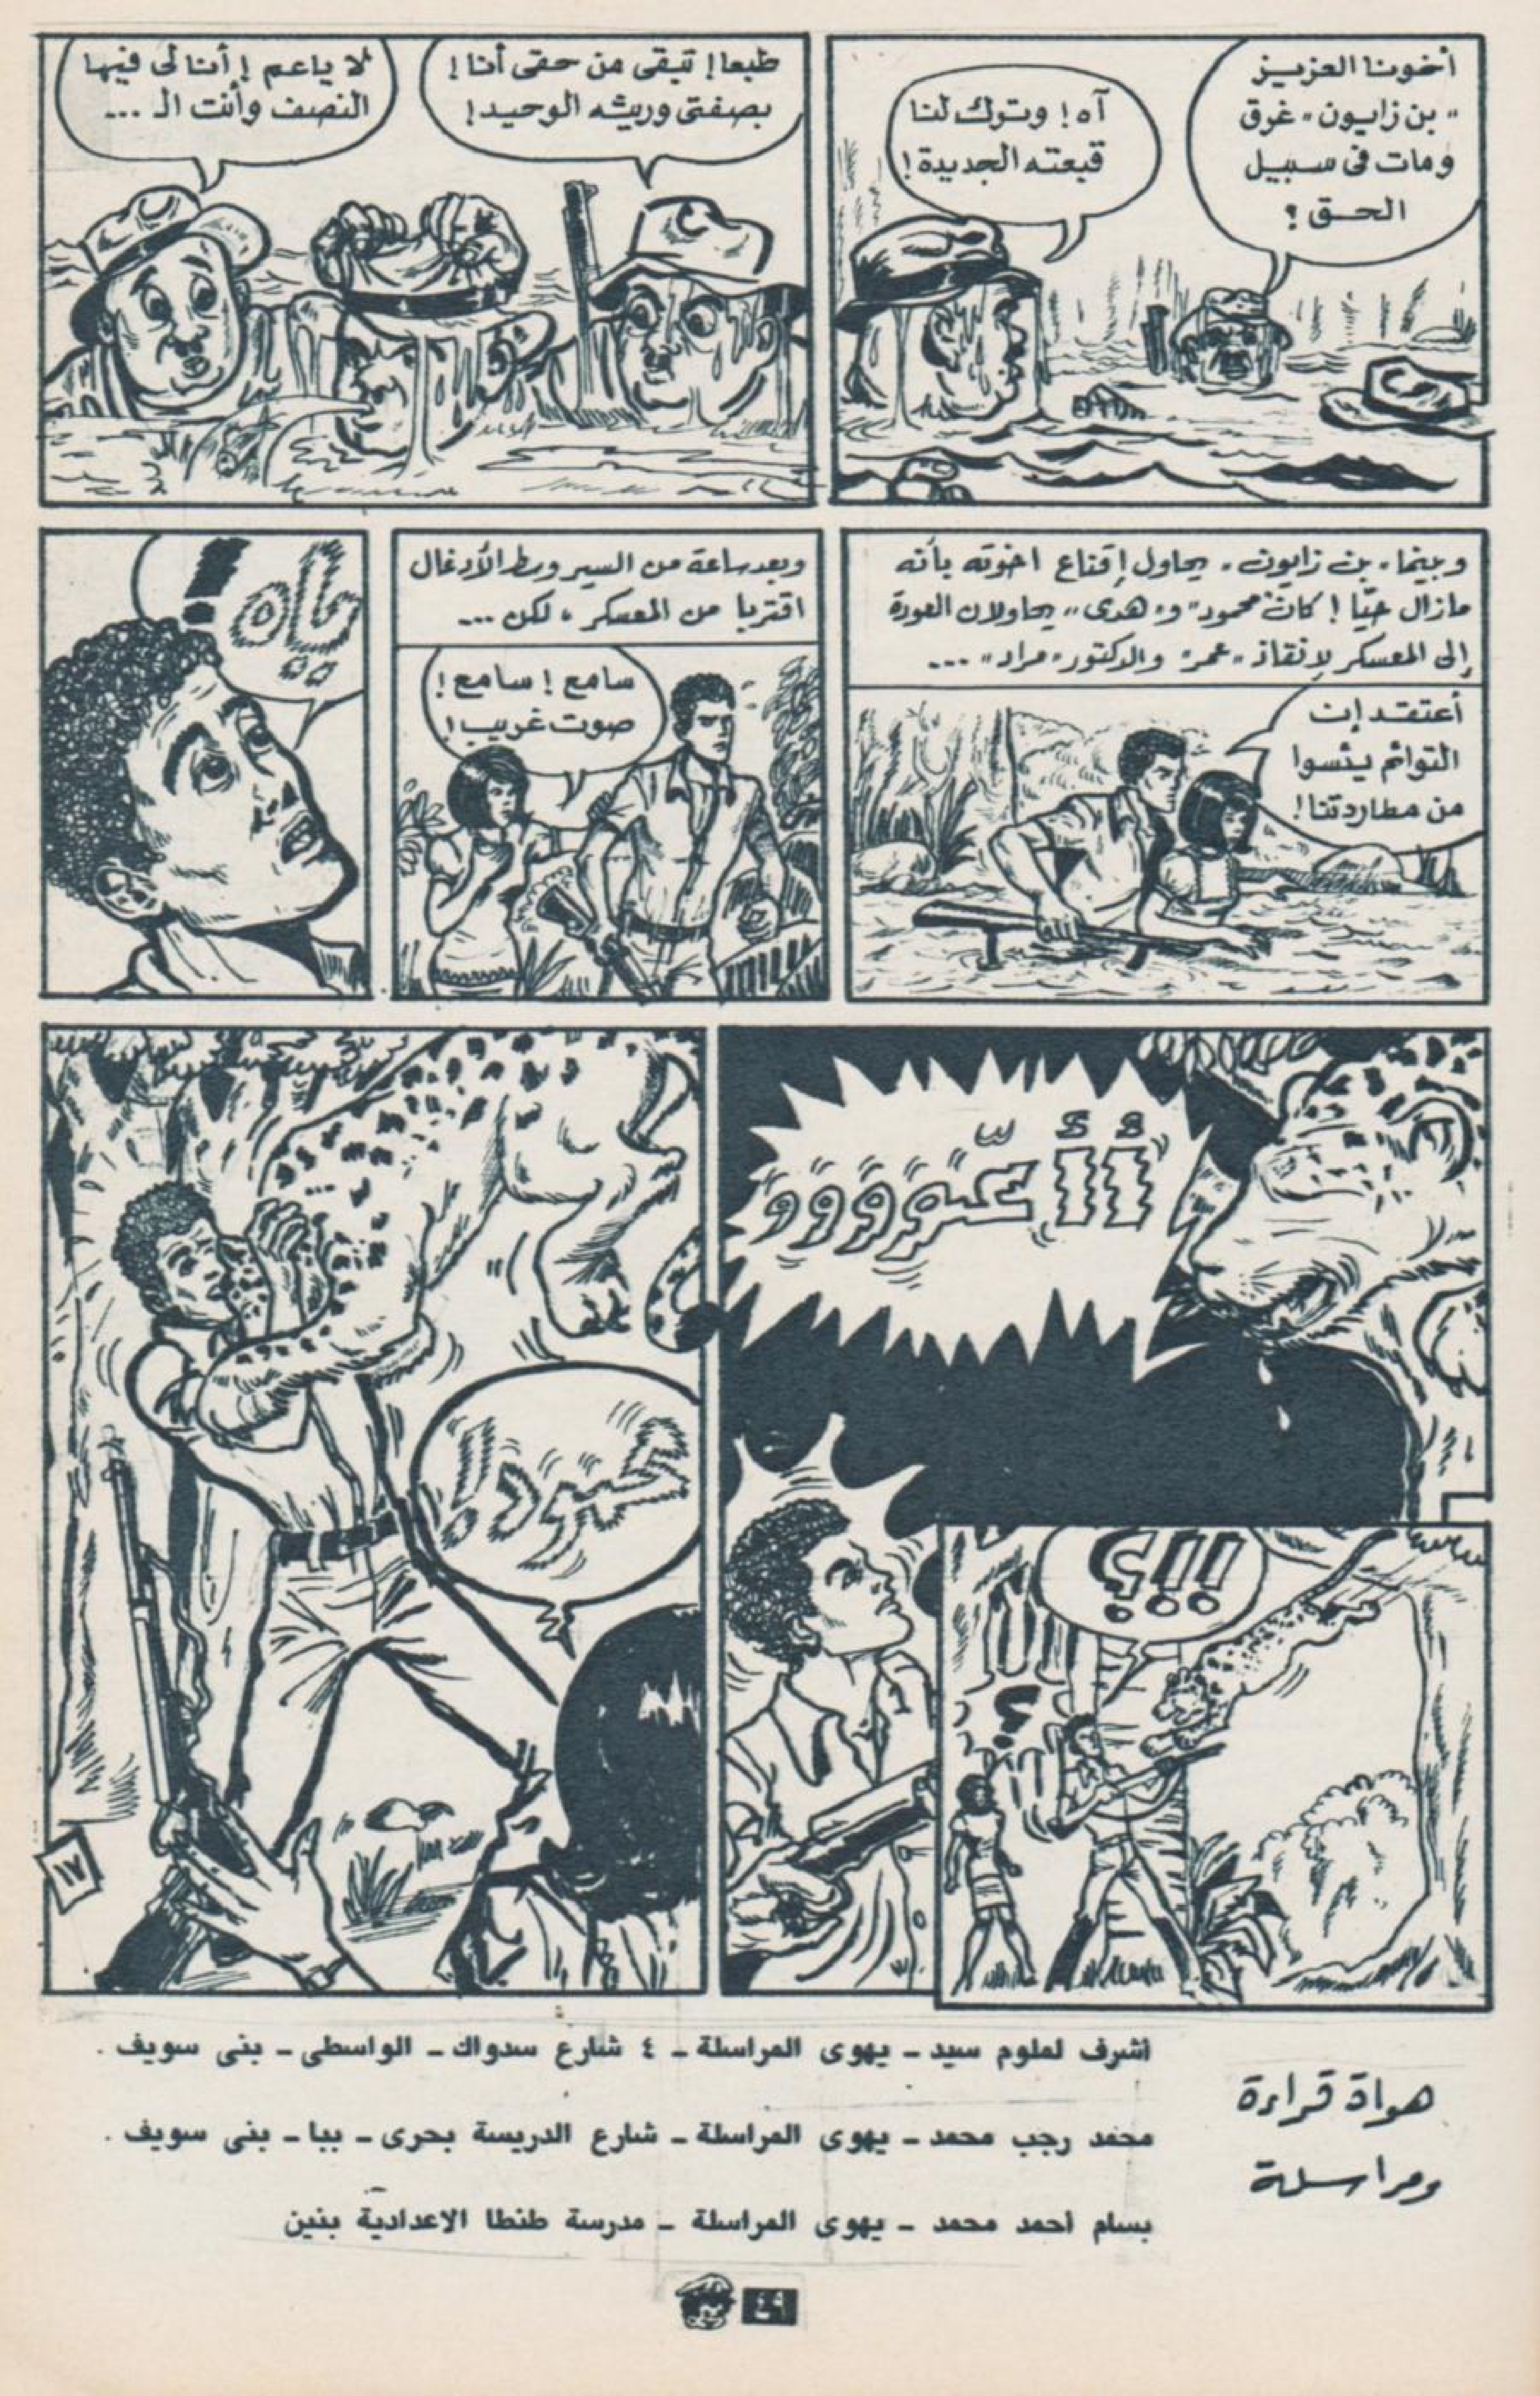 أخونا العزيز
"بن زايون" غرق
ومات فى سبيل
الحق ؟
آه ! وترك لنا
قبعته الجديدة !
طبعا ! تبقى من حقى أنا !
بصفتى وريثه الوحيد !
لا ياعم ! أنا لى فيها
النصف وأنت الـ ...
وبينما "بن زايون" يحاول إقناع اخوته بأنه
مازال حيّا ! كان "محمود" و"هدى" يحاولان العودة
إلى المعسكر لإنقاذ "عمر" والدكتور "مراد" ...
أعتقد إن
التوائم يئسوا
من مطاردتنا !
وبعد ساعة من السير وسط الأدغال
اقتربا من المعسكر ، لكن ...
سامع ! سامع !
صوت غريب !
ياه !
!!؟
؟
محمود !
١٧
هواة قراءة
ومراسلة
أشرف لملوم سيد - يهوى المراسلة - ٤ شارع سدواك - الواسطى - بنى سويف .
محمد رجب محمد - يهوى المراسلة - شارع الدريسة بحرى - ببا - بنى سويف .
بسام احمد محمد - يهوى المراسلة - مدرسة طنطا الاعدادية بنين
٤٩